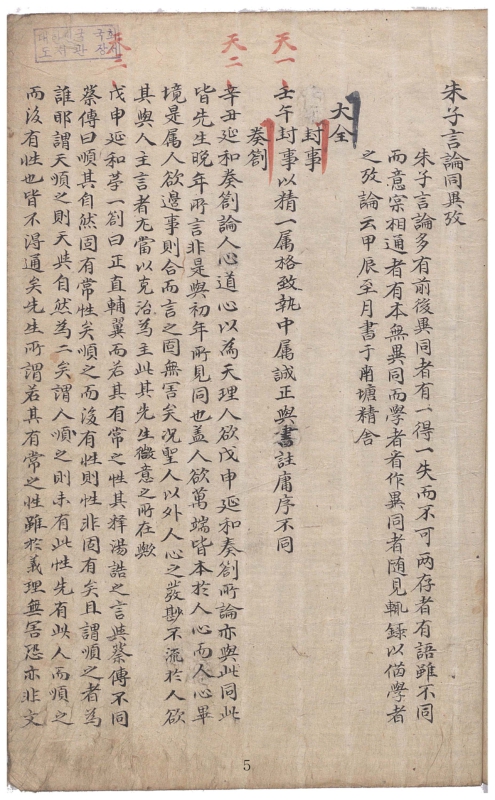 朱子言論同異攷
朱子言論多有前後異同者有一得一失而不可兩存者有語雖不同
而意宗相通者有本無異同而學者看作異同者随見輒録以俻學者
之攷論云甲辰至月書于南塘精舍
大全
封事
天一
壬午封事以精一属格致執中属誠正與書註庸序不同
奏劄
天二
辛丑延和奏劄論人心道心以為天理人欲戊申延和奏劄所論亦與此同此
皆先生晚年所言非是與初年所見同也盖人欲萬端皆本於人心而人心畢
境是属人欲邊事則合而言之固無害矣况聖人以外人心之發尠不流於人欲
其與人主言者尤當以克治為主此其先生微意之所在歟
天三
戊申延和苐一劄曰正直輔翼而若其有常之性其釋湯誥之言與蔡傳不同
蔡傳曰順其自然固有常性矣順之而後有性則性非固有矣且謂順之者為
誰耶謂天順之則天與自然為二矣謂人順之則未有此性先有此人而順之
而後有性也皆不得通矣先生所謂若其有常之性雖於義理無害恐亦非文
대한민국 국회
도서관 장서
5